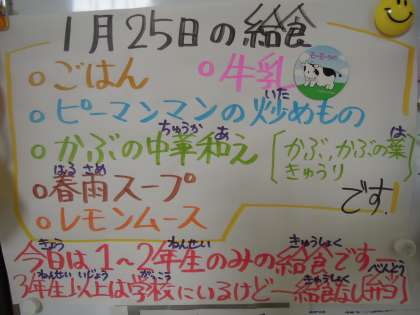 1月25日の給食
○ごはん ○牛乳
○ピーマンマンの炒めもの
○かぶの中華和え
かぶ、かぶの葉
きゅうり
○春雨スープ
○レモンムース
です。
今日は1～2年生のみの給食です
3年生以上は学校にいるけど給食なし(弁当)